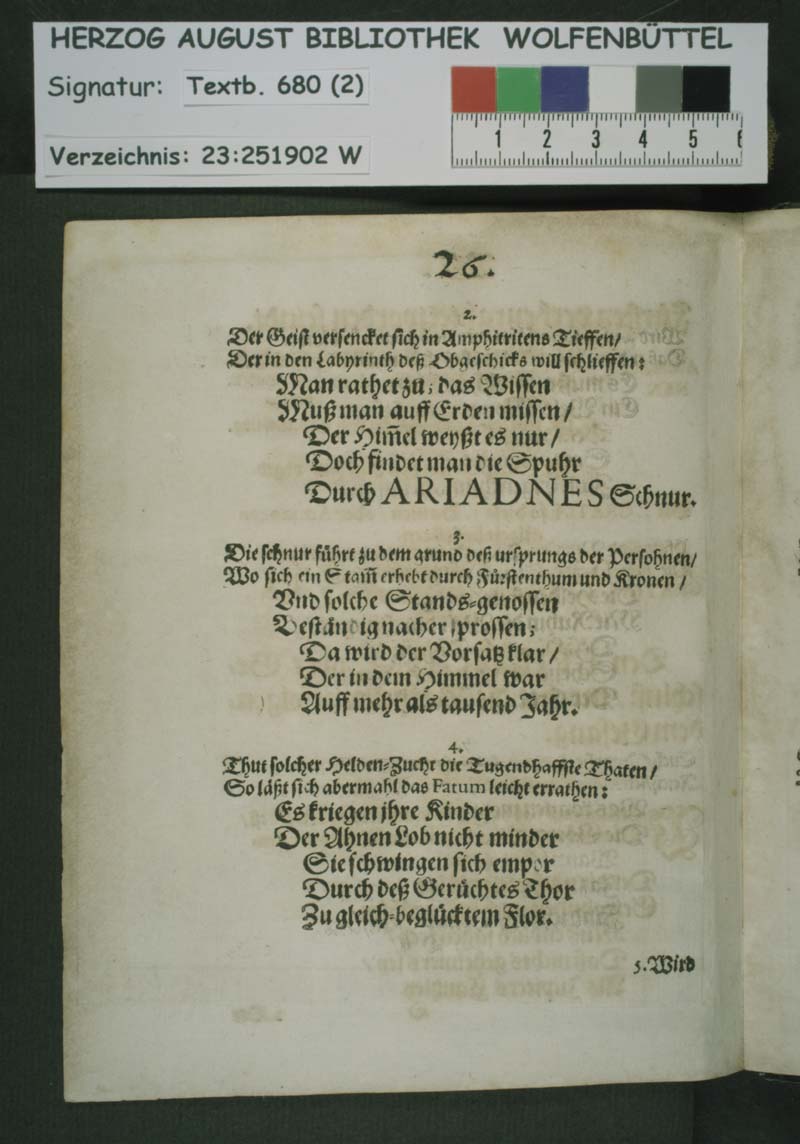 HERZOG AUGUST BIBLIOTHEK WOLFENBÜTTEL
Signatur: Textb. 680 (2)
Verzeichnis: 23:251902 W
1 2 3 4 5
26.
2.
Der Geist versencket sich in Amphitritens Tieffen/
Der in den Labyrinth deß Obgeschicks will schlieffen:
Man rathet zu; das Wissen
Muß man auff Erden missen/
Der Him̃el weyßt es nur/
Doch findet man die Spuhr
Durch ARIADNES Schnur.
3.
Die schnur führt zu dem grund deß ursprungs der Persohnen/
Wo sich ein Stam̃ erhebt durch Fürstenthum und Kronen/
Vnd solche Stands-genossen
Beständig nacher sprossen;
Da wird der Vorsatz klar/
Der in dem Himmel war
Auff mehr als tausend Jahr.
4.
Thut solcher Helden-Zucht die Tugendhaffste Thaten/
So läßt sich abermahl das Fatum leicht errathen:
Es kriegen jhre Kinder
Der Ahnen Lob nicht minder
Sie schwingen sich empor
Durch deß Gerüchtes Thor
Zu gleich-beglücktem Flor.
5. Wird